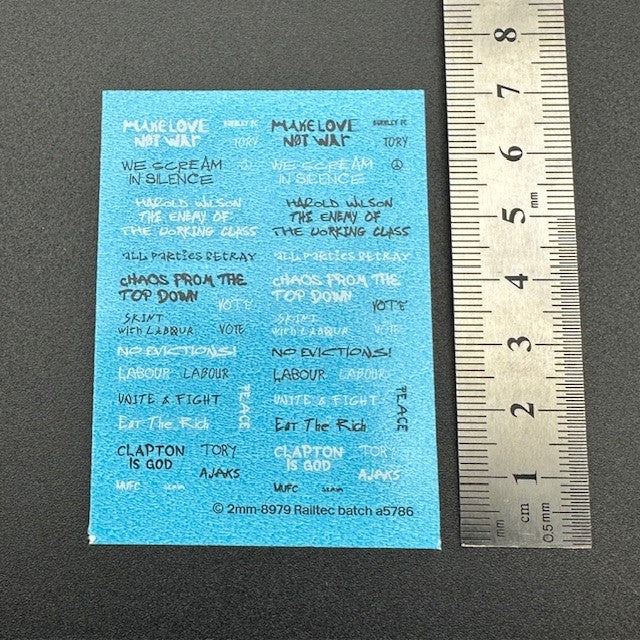 MAKE LOVE
NOT WAR
BURNLEY FC
TORY
WE SCREAM
IN SILENCE
HAROLD WILSON
THE ENEMY OF
THE WORKING CLASS
ALL PARTIES BETRAY
CHAOS FROM THE
TOP DOWN
VOTE
SKINT
with LABOUR
VOTE
NO EVICTIONS!
LABOUR LABOUR
UNITE & FIGHT
PEACE
EAT THE RICH
CLAPTON
IS GOD
TORY
AJAKS
MUFC
MAKE LOVE
NOT WAR
BURNLEY FC
TORY
WE SCREAM
IN SILENCE
HAROLD WILSON
THE ENEMY OF
THE WORKING CLASS
ALL PARTIES BETRAY
CHAOS FROM THE
TOP DOWN
VOTE
SKINT
with LABOUR
VOTE
NO EVICTIONS!
LABOUR LABOUR
UNITE & FIGHT
PEACE
EAT THE RICH
CLAPTON
IS GOD
TORY
AJAKS
MUFC
© 2mm-8979 Railtec batch a5786
8
7
6
5
mm
4
3
2
1
mm
cm
0.5mm